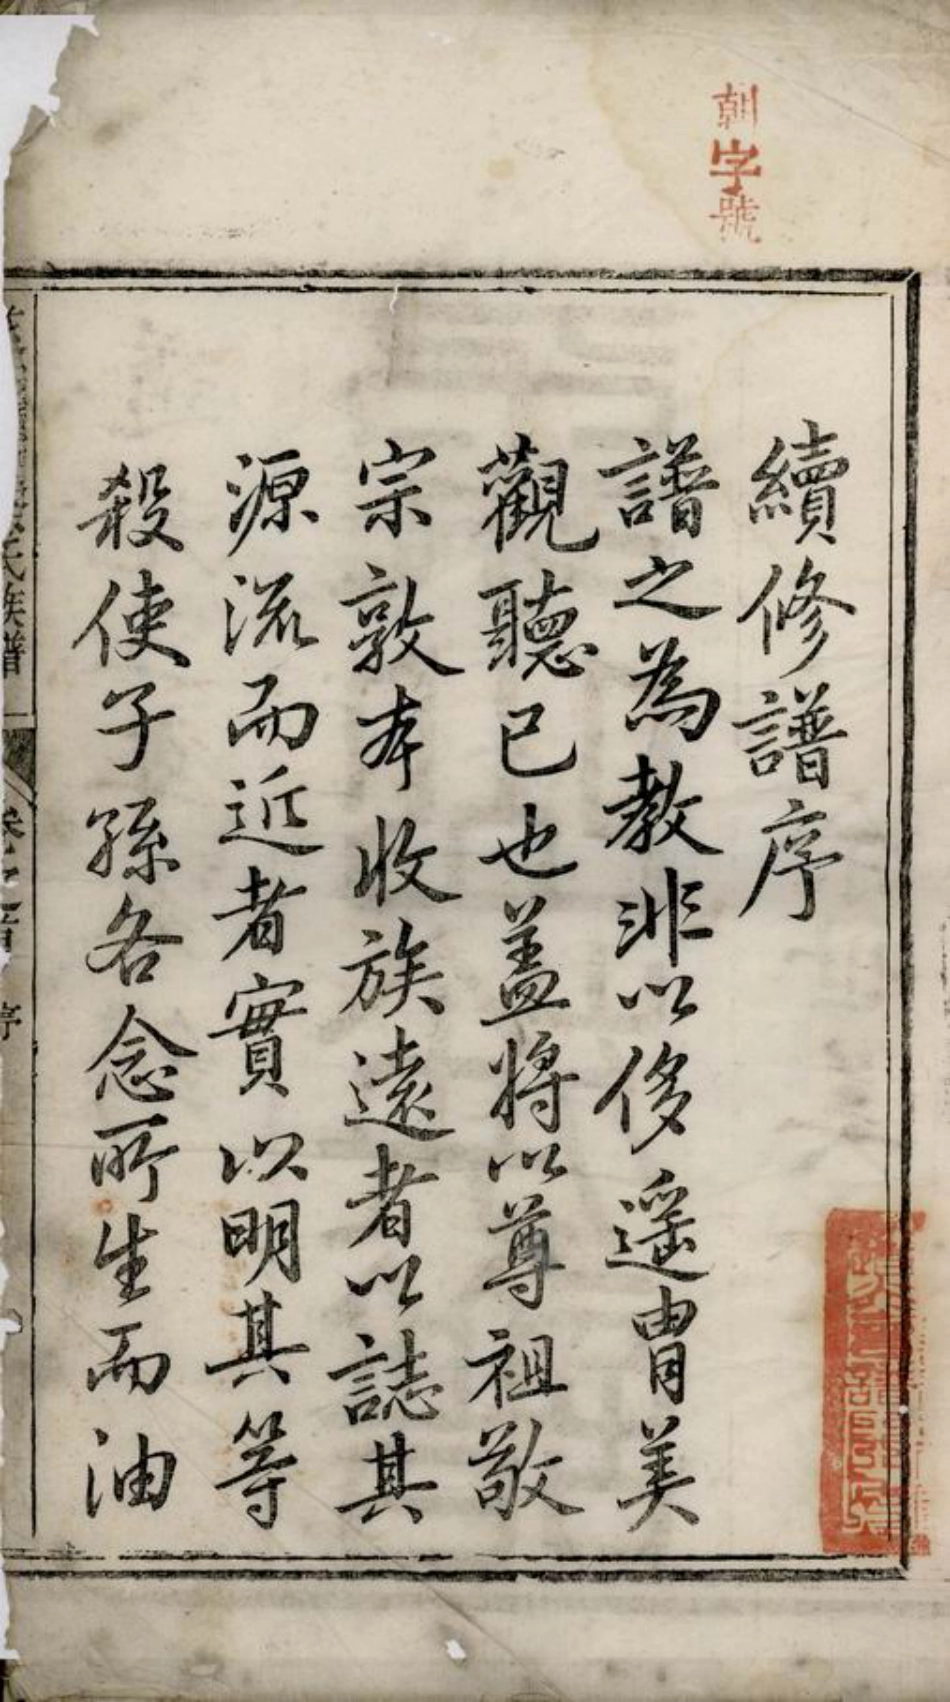 朝字號
續修譜序
譜之為教非以侈遥胄美
觀聽已也盖將以尊祖敬
宗敦本收族遠者以誌其
源流而近者實以明其等
殺使子孫各念所生而油
氏族譜
卷之首
序